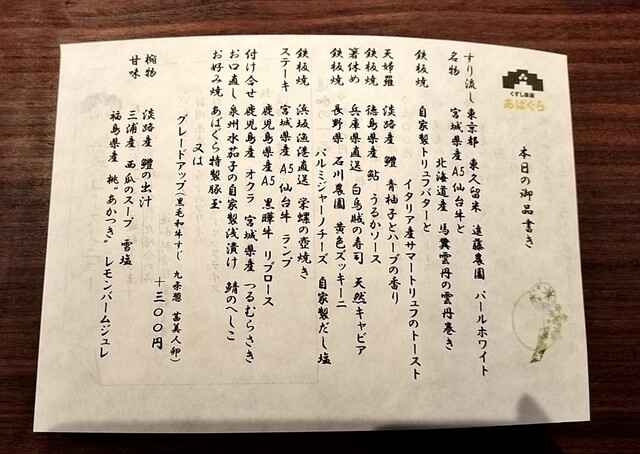 くずし鉄板
あばぐら
本日の御品書き
すり流し 東京都 東久留米 遠藤農園 パールホワイト
名物 宮城県産A5仙台牛と
北海道産 馬糞雲丹の雲丹巻き
鉄板焼 自家製トリュフバターと
イタリア産サマートリュフのトースト
天婦羅 淡路産 鱧 青柚子とハーブの香り
鉄板焼 徳島県産 鮎 うるかソース
箸休め 兵庫県直送 白烏賊の寿司 天然キャビア
鉄板焼 長野県 石川農園 黄色ズッキーニ
パルミジャーノチーズ 自家製だし塩
鉄板焼 浜坂漁港直送 栄螺の壺焼き
ステーキ 宮城県産A5仙台牛 ランプ
鹿児島県産A5 黒曄牛 リブロース
付け合せ 鹿児島産 オクラ 宮城県産 つるむらさき
お口直し 泉州水茄子の自家製浅漬け 鯖のへしこ
お好み焼 あばぐら特製豚玉
又は
グレードアップ(黒毛和牛すじ 九条葱 茜美人卵)
+三〇〇円
椀物 淡路産 鱧の出汁
甘味 三浦産 西瓜のスープ 雪塩
福島県産 桃"あかつき" レモンバームジュレ